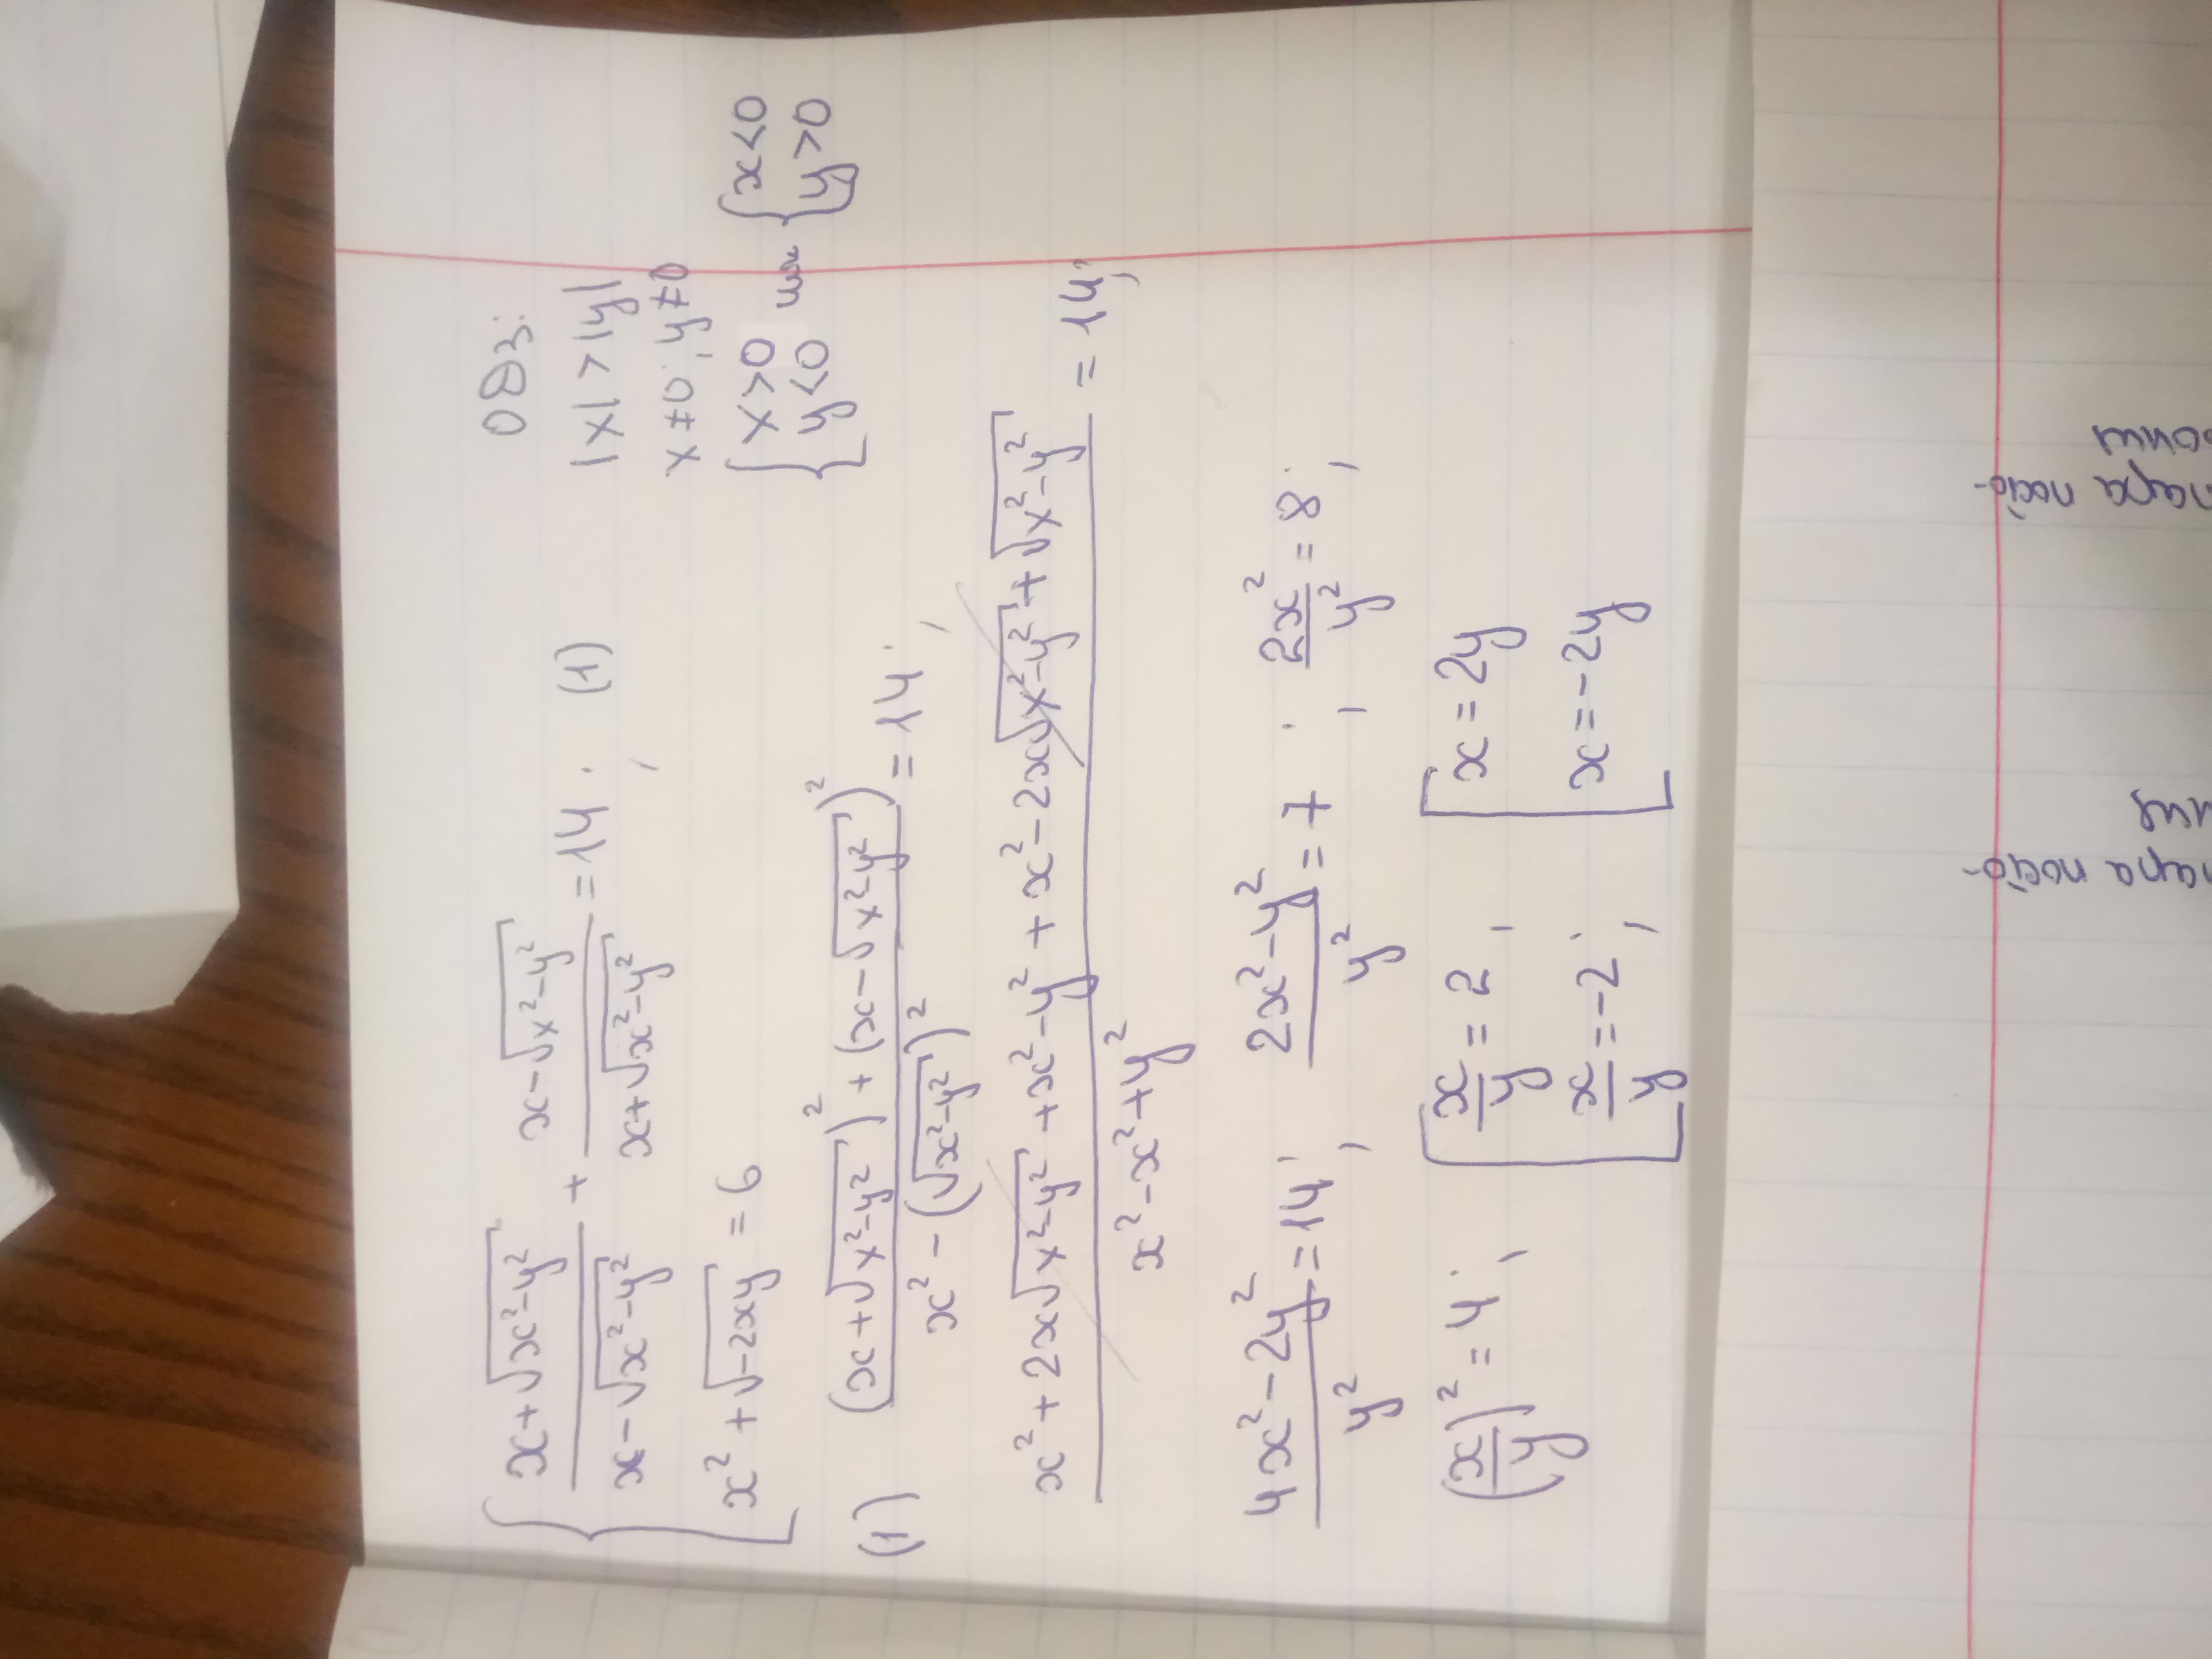 { (x+√(x²-y²))/(x-√(x²-y²)) + (x-√(x²-y²))/(x+√(x²-y²)) = 14; (1)
x² + √(-2xy) = 6
ОДЗ:
|x| > |y|
x≠0; y≠0
{ x>0 y<0 или { x<0 y>0
(1) ((x+√(x²-y²))² + (x-√(x²-y²))²)/(x² - (√(x²-y²))²) = 14;
(x² + 2x√(x²-y²) + x²-y² + x² - 2x√(x²-y²) + √(x²-y²))/(x²-x²+y²) = 14;
(4x²-2y²)/y² = 14; (2x²-y²)/y² = 7; 2x²/y² = 8;
(x/y)² = 4; [ x/y = 2, x/y = -2; [ x = 2y x = -2y
пара
пара